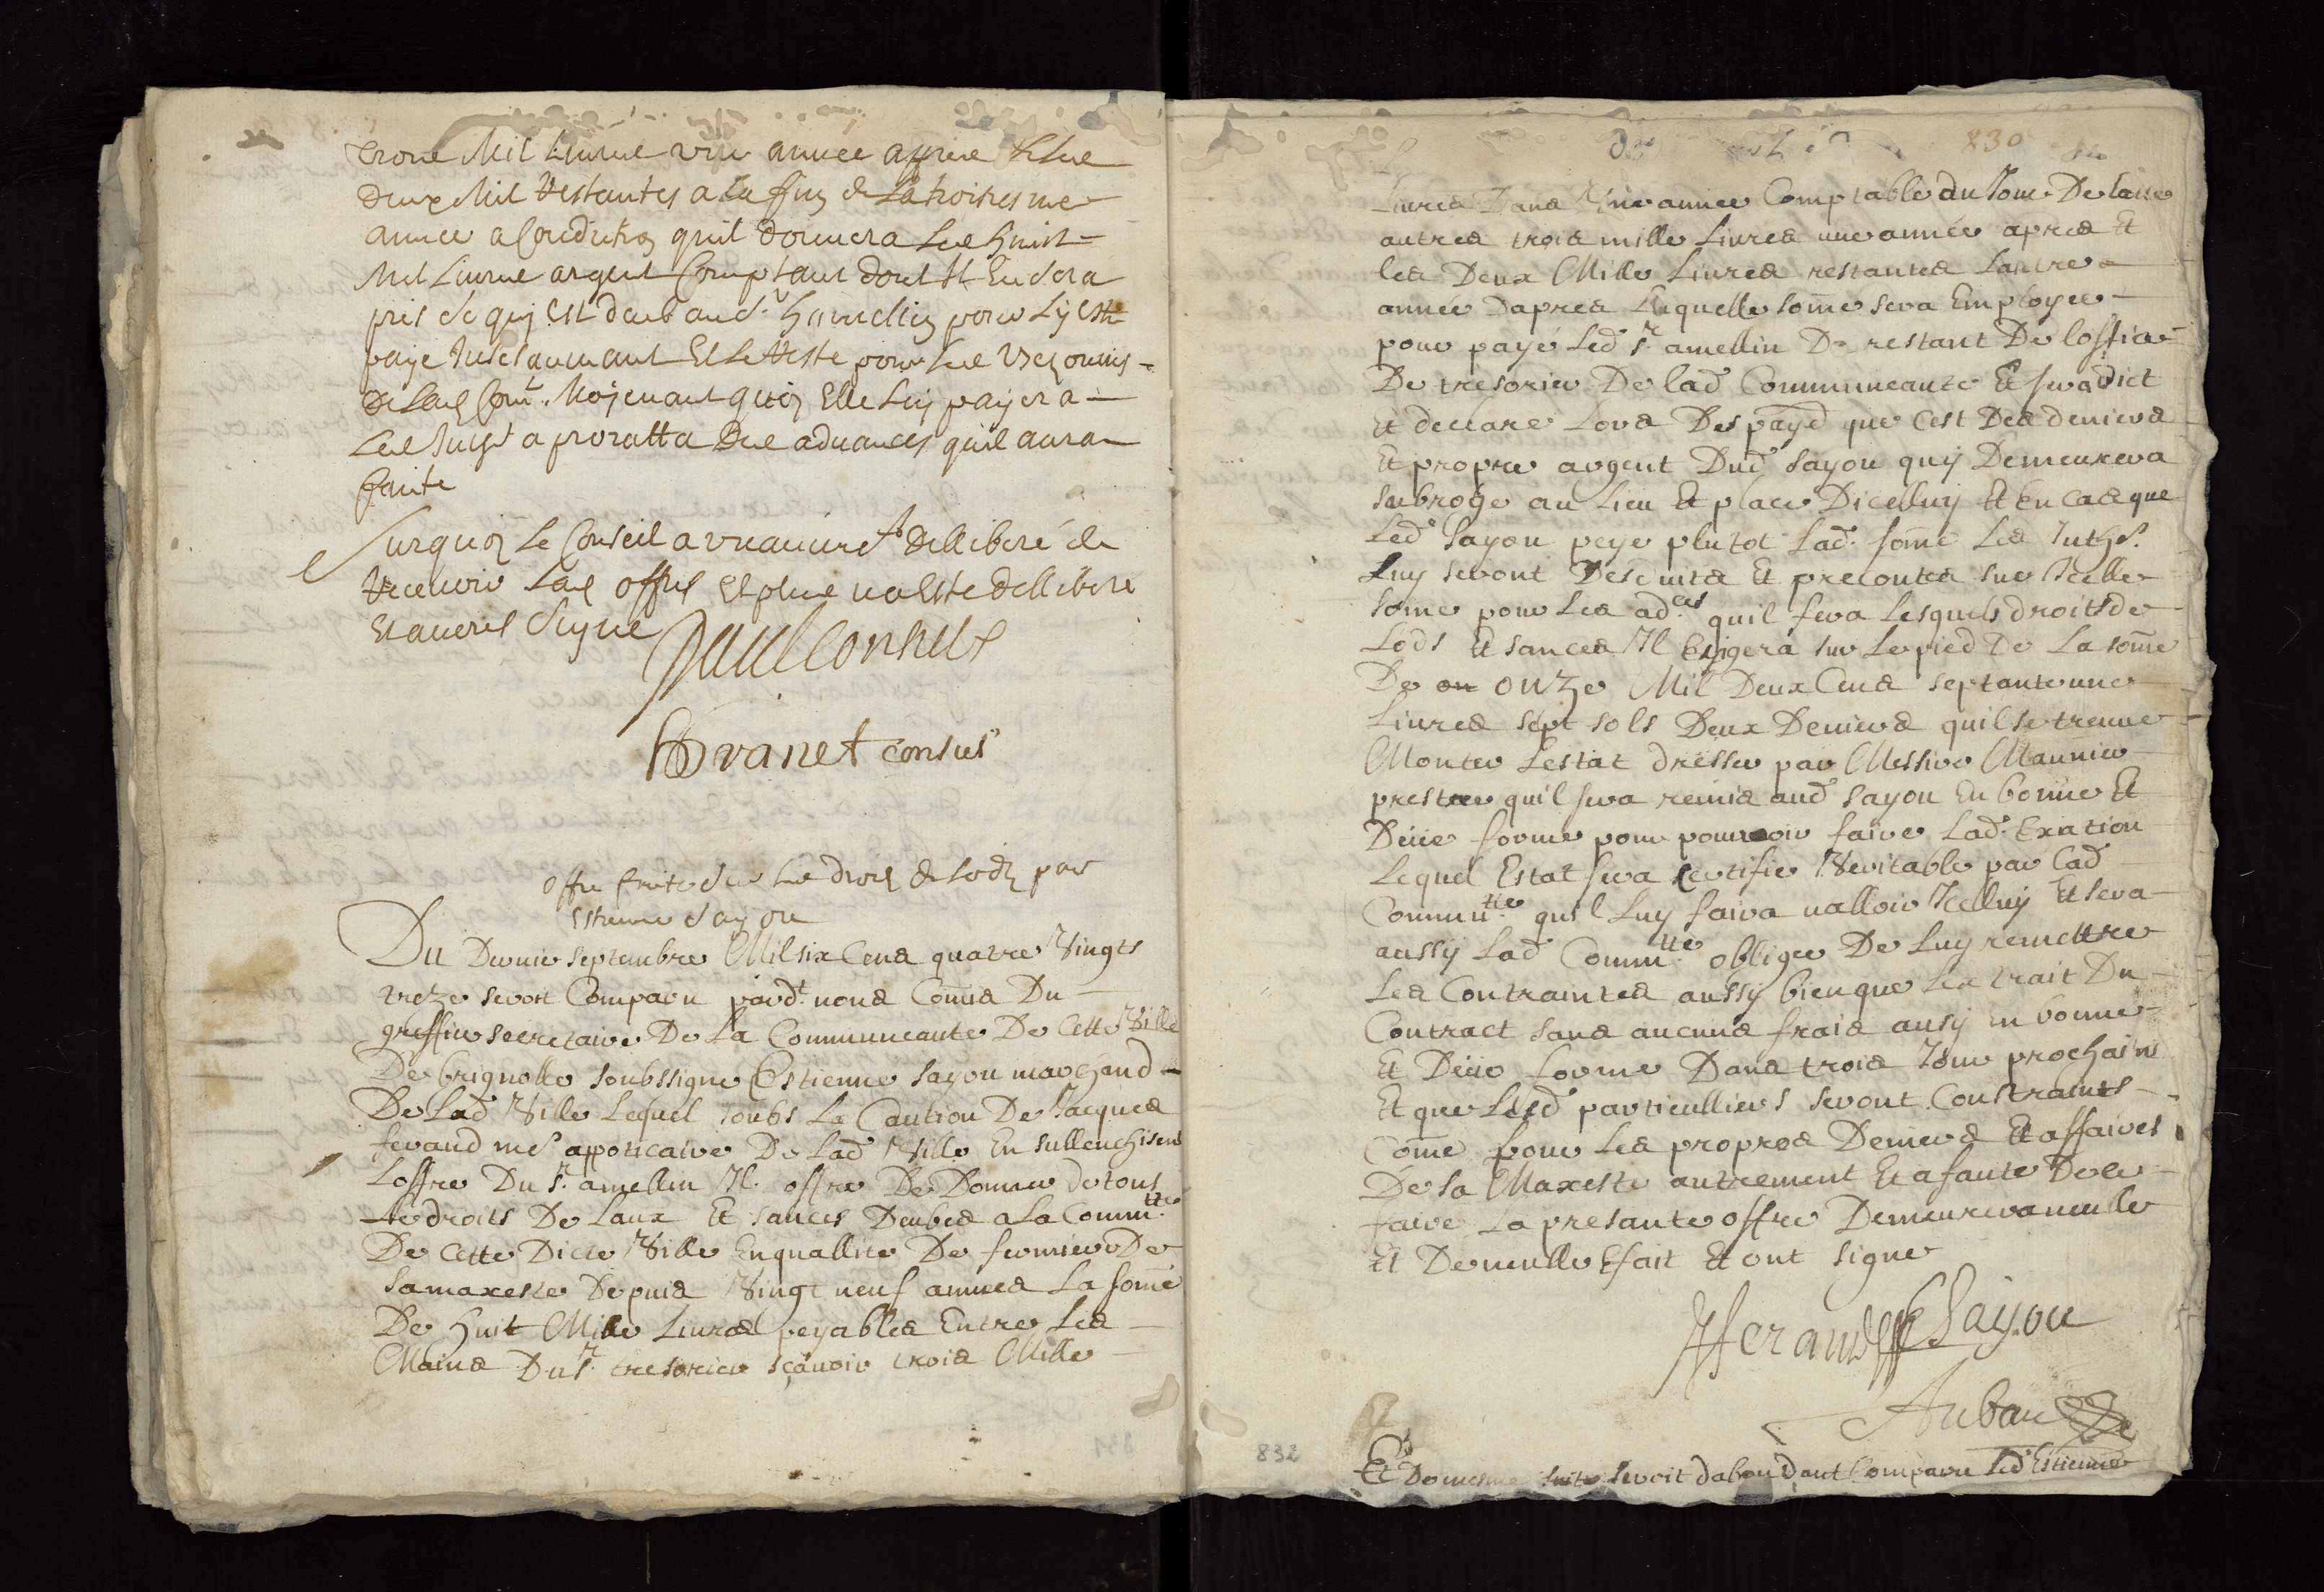 trois Mil Livres une année appres & les
deux Mil Restantes a la fin de la troisiesme
année a Condition quil donnera les huit
Mil Livres argent Comptant dont Il En sera
pris ce quy est deub aud Sr hamellin pour luy estre
payé Et le Reste pour les
de lad Comté. Moyenant quoy Elle luy payera
les Intst a proratta des advances quil aura
faite
Surquoy Le Conseil a unanimet dellibéré de
Recevoir lad offre Et plus na Esté dellibéré
Et avons Signé
Consul
Branet consul
offre faite sur les droitz de lodz par
Estienne Sayou
Du Dernier septembre Mil six Cens quatre Vingts
treze seroit Comparu pardt nous Comis Du
greffier secretaire De La Communeauté De Cette Ville
De brignolle soubssigné Estienne Sayou marchand
De Lad Ville Lequel soubs La Caution De Jacques
feraud me appoticaire De Lad Ville En sullenchisent
Loffre Du Sr. amellin Il offre De Donner de tous
les droits De Laux Et sances Deubes a La Commtté
De Cette Dicte Ville En quallité De fermiere De
sa maxesté Depuis Vingt neuf années La some
De huit Mille Livres peyables Entre Les
Mains Du Sr. tresorier sçavoir trois Mille
830
Livres Dans Une année Comptable du Jour De
autres trois mille Livres une année apres Et
les Deux Mille Livres restantes Lautre
année Dapres Laquelle some sera Employée
pour payé Led Sr. amellin De restant De loffice
De tresorier De lad Communeauté Et sera dict
Et declaré Lors Des payed que Cest Des deniers
Et propre argent Dud Sayou quy Demeurera
subrogé au Lieu Et place Dicelluy Et En Cas que
Led Sayou peye plutot Lad. some Les Inthes.
Luy seront Descuits Et precontés sur Icelle
some pour Les ad.ces quil fera Lesquels droits de
Lods Et sances Il Exigera sur Le pied De La some
De on onze Mil Deux Cens septante une
Livres sept sols Deux Deniers quil se treuve
Monter Lestat dresser par Messire Maunier
prestre quil sera remis aud Sayou En bonne Et
Deüe forme pour pouvoir faire Lad. Exation
Lequel Estat sera Certifié Veritable par Lad
Commutté quil Luy faira valloir Icelluy Et sera
aussy Lad Communtté obligée De Luy remettre
Les Contraintes aussy bien que Lextrait Du
Contract sans aucuns frais ausy En bonne
Et Deüe forme Dans trois Jour prochains
Et que Lesd particulliers seront Constraints
Come pour Les propres Deniers Et affaires
De sa Maxesté autrement Et a faute De ce
faire La presante offre Demeurera nulle
Et De nulle Efait Et ont signé
J feraud E Sayou
Auban
Et De mesme suite seroit dabondant Comparu Led Estienne
832
831